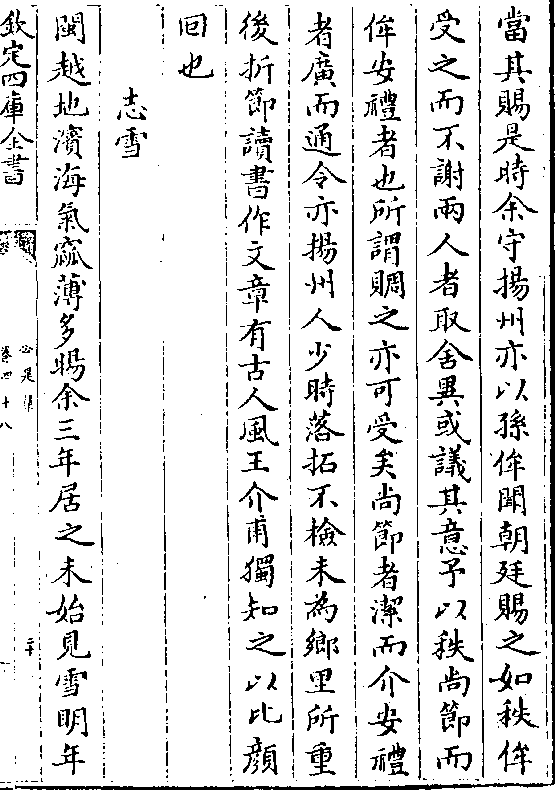 當其賜是時余守揚州亦以孫侔聞朝廷賜之如秩侔
受之而不謝兩人者取舍異或議其意予以秩尚節而
侔安禮者也所謂賙之亦可受矣尚節者潔而介安禮
者廣而通令亦揚州人少時落拓不檢未為鄉里所重
後折節讀書作文章有古人風王介甫獨知之以比顔
回也
志雪
閩越地濱海氣窳薄多暘余三年居之未始見雪明年
欽定四庫全書
公是集
卷四十八
二十